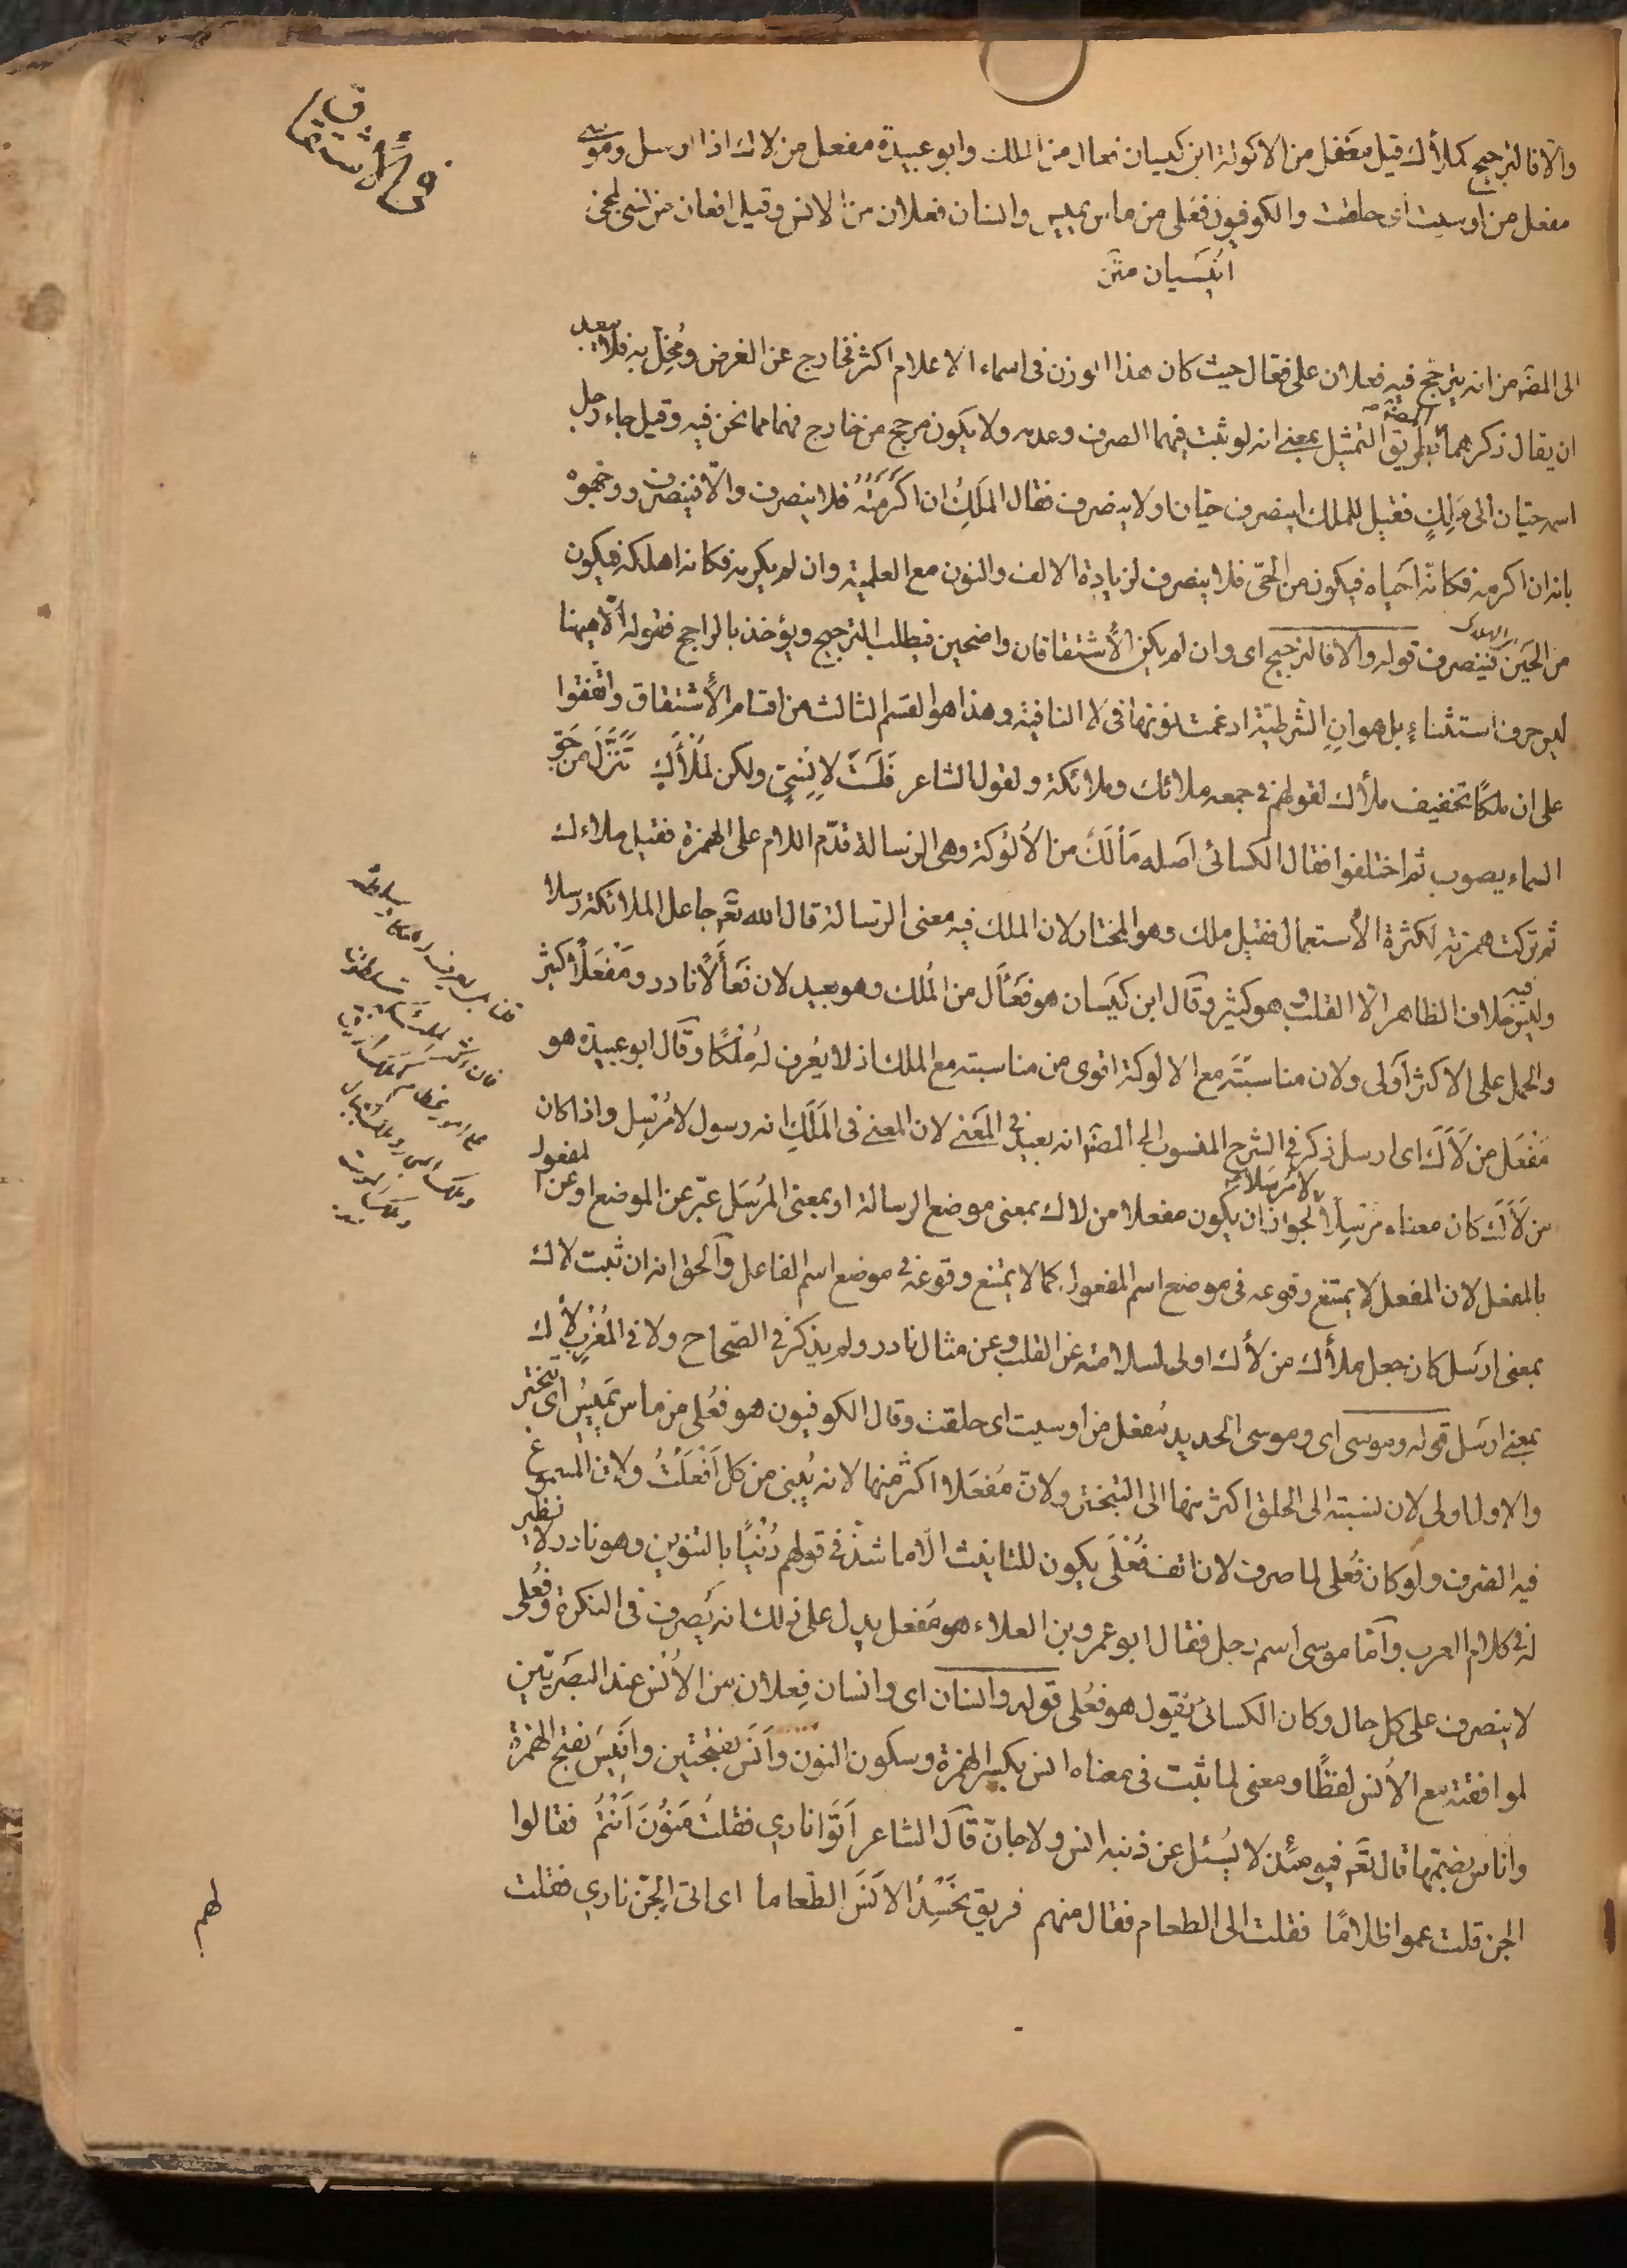 والا فالترجيح كملأك قيل مفعل من الالوكة ابن كيسان فعأل من الملك وابو عبيدة مفعل من لاك اذا ارسل وموسى
مفعل من اوسيت اى حلقت والكوفيون فعلى من ماس يميس وانسان فعلان من الانس وقيل افعان من نسى لمجئ
انيسيان متن
الى المصّ من انه يترجح فيه فعلان على فعال حيث كان هذا الوزن فى اسماء الاعلام اكثر فخارج عن الغرض ومُخِلّ به فلا يبعد
ان يقال ذكرهما المصّ بطريق التمثيل بمعنى انه لو ثبت فيهما الصرف وعدمه ولا يكون مرجح من خارج فهما مما نحن فيه وقيل جاء رجل
اسمه حيان الى مَلِكٍ فقيل للملك اينصرف حيان اولا ينصرف فقال المَلِكُ ان اكرَمتُهُ فلا ينصرف والّا فينصرف ووجّهوه
بانه ان اكرمه فكانّه احياه فيكون من الحىّ فلا ينصرف لزيادة الالف والنون مع العلمية وان لم يكرمه فكانه اهلكه فيكون
من الحَين فينصرف قوله والا فالترجيح اى وان لم يكن الأشتقاقان واضحين فيطلب الترجيح ويؤخذ بالراجح فقوله الّا ههنا
ليس حرف استثناءٍ بل هو انِ الشرطيّة ادغمت نونها فى لا النافية وهذا هو القسم الثالث من اقسام الأشتقاق واتّفقوا
على ان ملكًا تخفيف ملأك لقولهم فى جمعه ملائك وملائكة ولقول الشاعر فَلَستَ لِاِنسِىٍّ ولكن لمَلْأَكٍ تَنَزَّلَ من جَوِّ
السماء يصوب ثم اختلفوا فقال الكسائى اصله مَألَكٌ من الألُوكة وهى الرسالة قدّم اللام على الهمزة فقيل ملاءك
ثم تركت همزته لكثرة الأستعمال فقيل ملك وهو المختار لان الملك فيه معنى الرسالة قال الله تعّ جاعل الملائكة رسلا
وليس فيه خلاف الظاهر الا القلب وهو كثير وقال ابن كيَسان هو فَعْأَل من المُلك وهو بعيد لان فَعْأَلًا نادر ومَفْعَلًا كثير
والحمل على الاكثر اَولى ولان مناسبتَه مع الالوكة اقوى من مناسبته مع الملك اذ لا يعُرف له مُلْكًا وقال ابو عبيدة هو
مَفْعَل من لَأَكَ اى ارسل ذكر فى الشرح المنسوب الى المصّ انه بعيد فى المَعنى لان المعنى فى المَلَكِ انه رسول لا مُرْسِل واذا كان
من لَأَكَ كان معناه مرسِلًا لا مُرسَلا لجواز ان يكون مفعلا من لاك بمعنى موضع الرسالة او بمعنى المرُسَل عبّر عن الموضع او عن المفعول
بالمفعل لان المفعل لا يمتنع وقوعه فى موضع اسم المفعول كما لا يمتنع وقوعه فى موضع اسم الفاعل والحق انه ان ثبت لاك
بمعنى ارَسل كان جعل ملأك من لأك اولى لسلامته عن القلب وعن مثال نادر ولم يذكر فى الصّحاح ولا فى المُغرب لأك
بمعنى ارسَل قوله وموسى اى وموسى الحديد مفعل من اوسيت اى حلقت وقال الكوفيون هو فعُلى من ماس يَميسُ اى تبختر
والاول اولى لان نسبته الى الحلق اكثر منها الى التبختر ولانّ مُفعَلا اكثر منها لانه يُبنى من كل اَفْعلْتُ ولان المسموع
فيه الصرف ولو كان فُعلى لما صرف لان الف فُعْلى يكون للتانيث الّا ما شذّ فى قولهم دُنْيًا بالتنوين وهو نادر لا نظير
له فى كلام العرب وآمّا موسى اسم رجل فقال ابو عمرو بن العلاء هو مُفعل يدل على ذلك انه يَصرف فى النكرة وفُعلى
لا ينصرف على كل حال وكان الكسائىُّ يقول هو فعُلى قوله وانسان اى وانسان فِعلان من الأنس عند البصَريّين
لموافقته مع الأنس لفظًا ومعنى لما ثبت فى معناه انس بكسر الهمزة وسكون النون وَأنَسَ بفتحتين واَنِيسَ بفتح الهمزة
واناس بضمّها قال تعّ فيومئذ لا يُسئل عن ذنبه انس ولا جانّ قالَ الشاعر اَتَوا نارى فقلتُ مَنُوْنَ اَنتُمُ فقالوا
الجن قلت عموا ظلامًا فقلت الى الطعام فقال منهم فريق نَحْسُدُ الاَنَسَ الطّعاما اى اتى الجنّ نارى فقلت
لهم